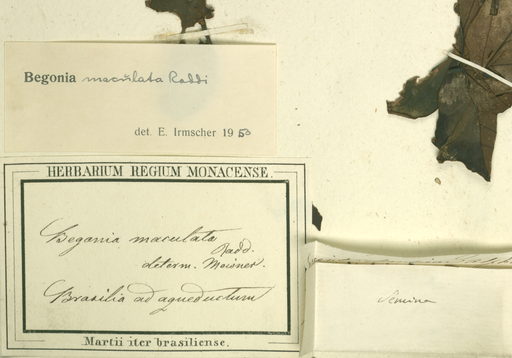 Begonia maculata Raddi
det. E. Irmscher 1950
HERBARIUM REGIUM MONACENSE.
Begonia maculata
Radd.
determ. Meisner.
Brasilia ad aqueductum
Martii iter brasiliense.
Semina